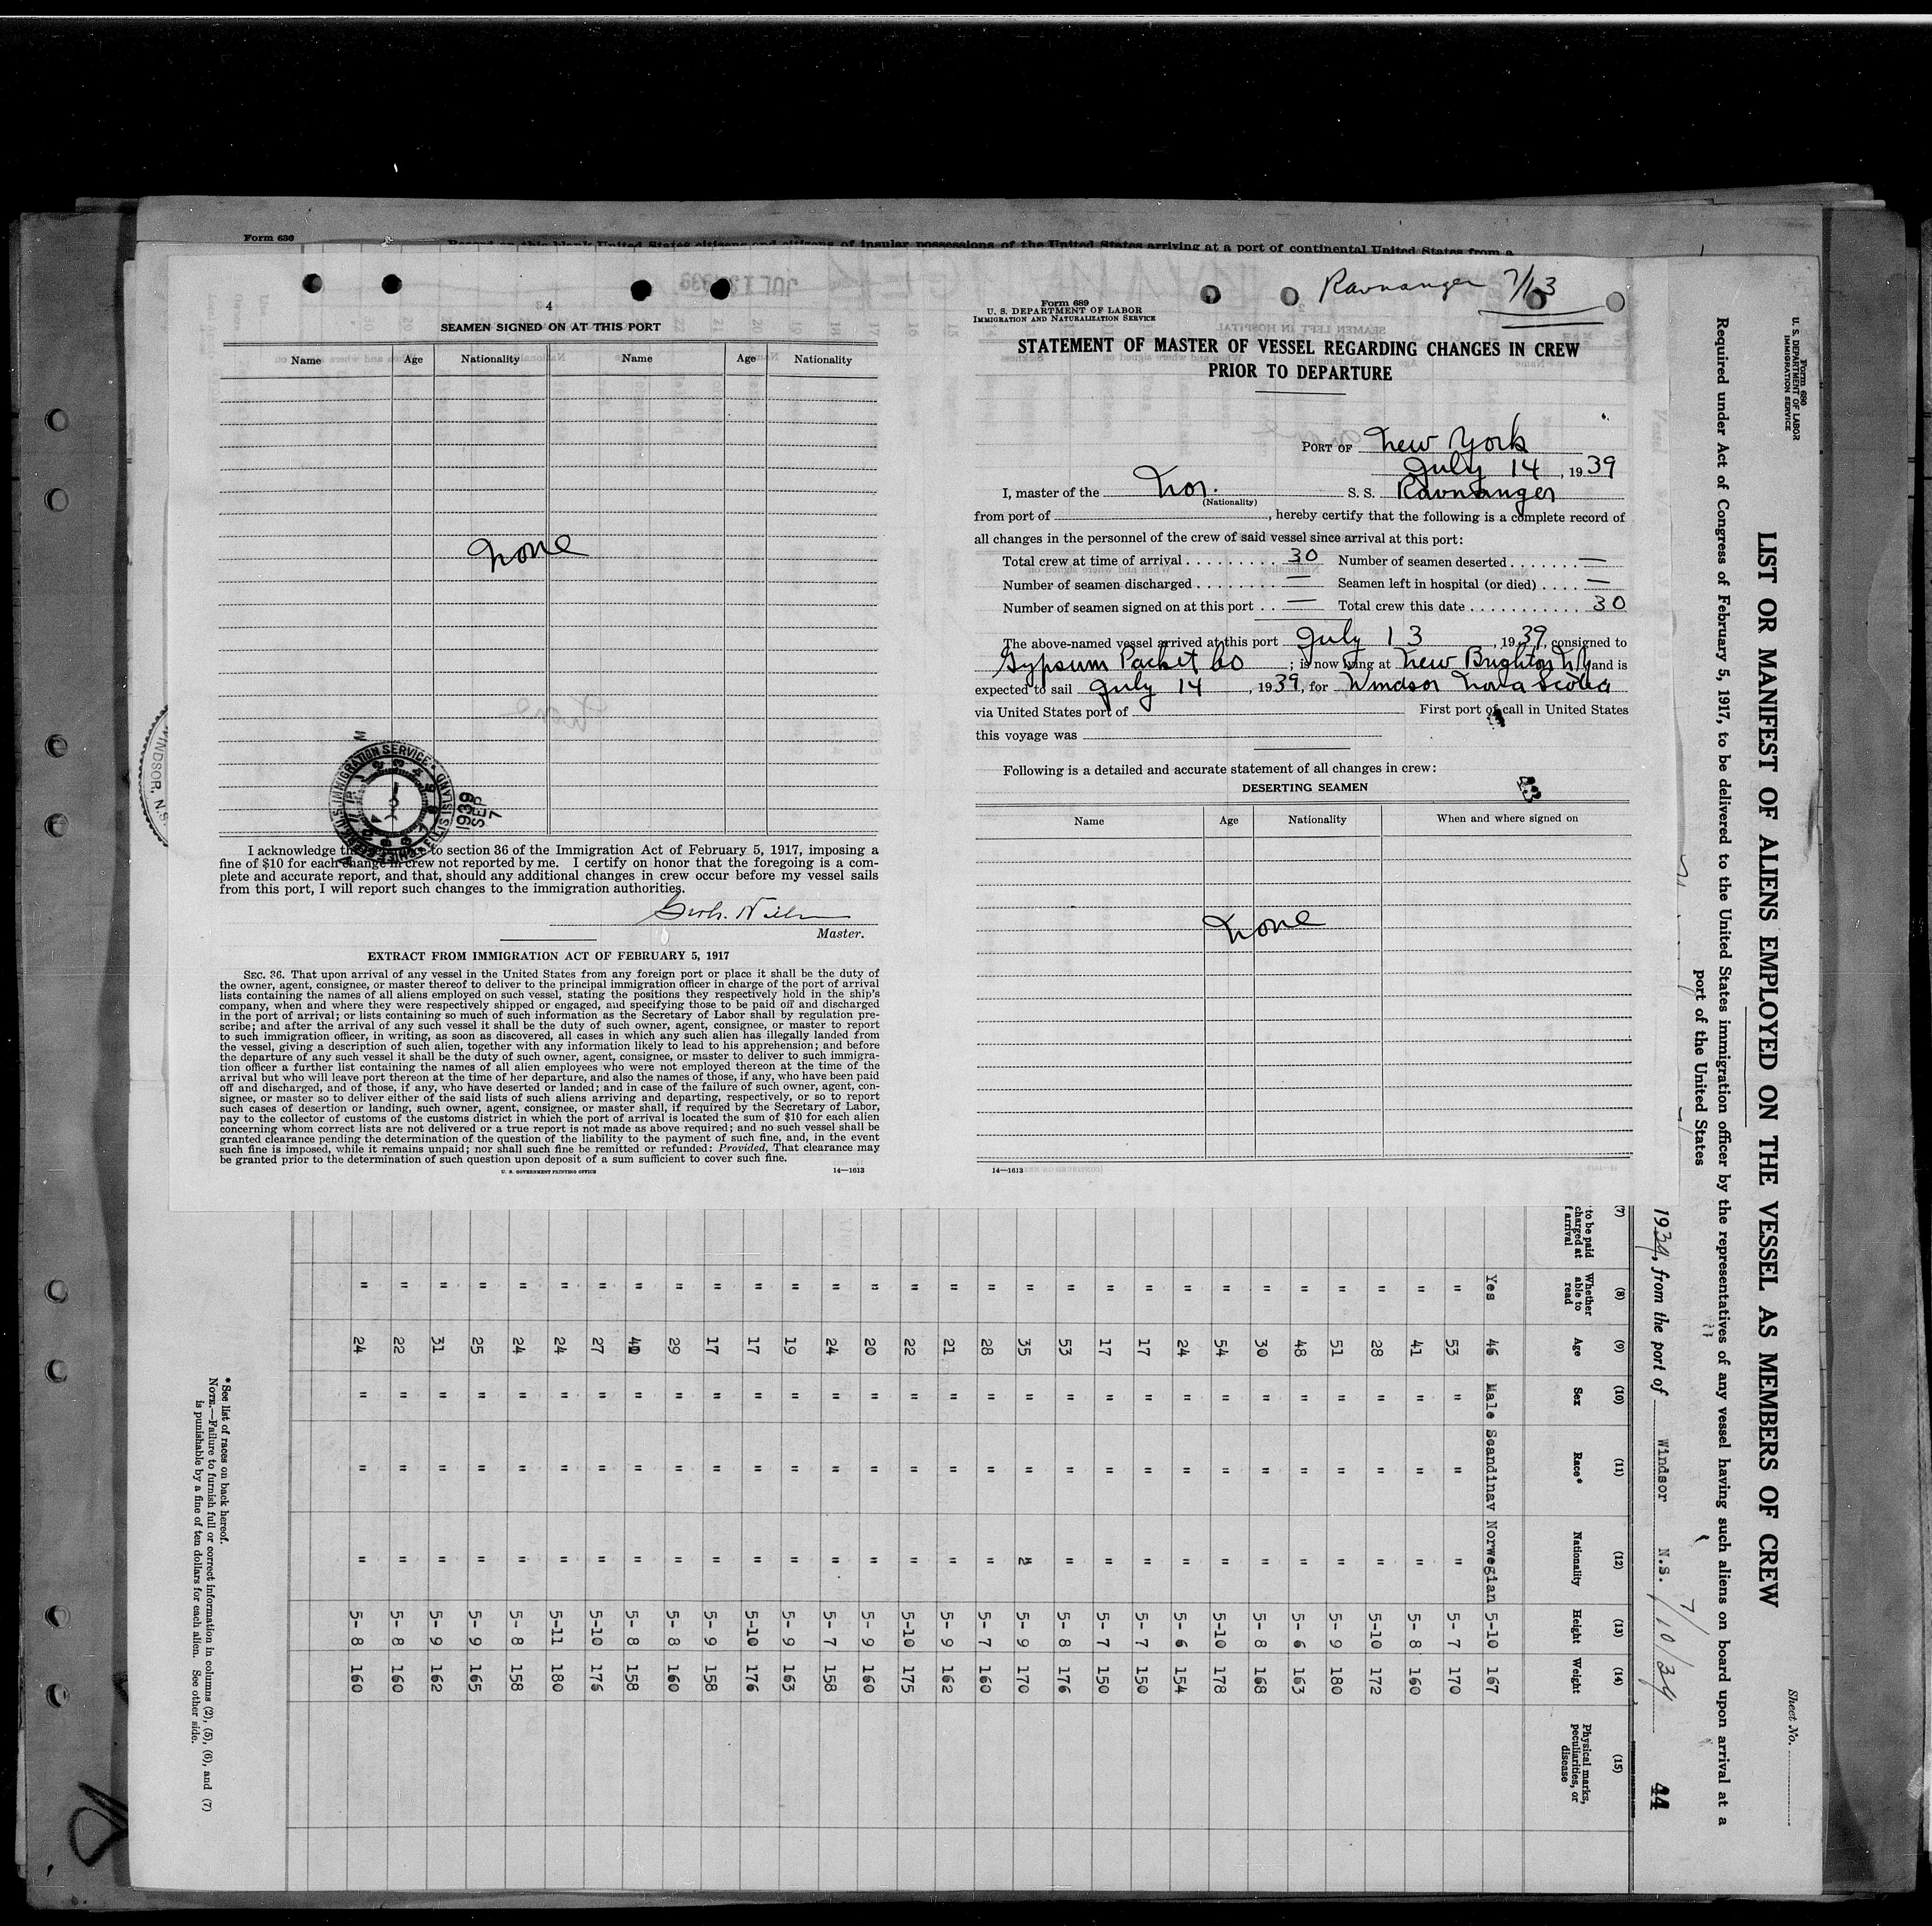 Form 630
Record on this blank United States citizens and citizens of insular possessions of the United States arriving at a port of continental United States from a
4
SEAMEN SIGNED ON AT THIS PORT
Name Age Nationality Name Age Nationality
None
WINDSOR, N.S.
U.S. IMMIGRATION SERVICE
ELLIS ISLAND
1939
SEP
7
I acknowledge to section 36 of the Immigration Act of February 5, 1917, imposing a
fine of $10 for each change in crew not reported by me. I certify on honor that the foregoing is a com-
plete and accurate report, and that, should any additional changes in crew occur before my vessel sails
from this port, I will report such changes to the immigration authorities.
Master.
EXTRACT FROM IMMIGRATION ACT OF FEBRUARY 5, 1917
SEC. 36. That upon arrival of any vessel in the United States from any foreign port or place it shall be the duty of
the owner, agent, consignee, or master thereof to deliver to the principal immigration officer in charge of the port of arrival
lists containing the names of all aliens employed on such vessel, stating the positions they respectively hold in the ship's
company, when and where they were respectively shipped or engaged, and specifying those to be paid off and discharged
in the port of arrival; or lists containing so much of such information as the Secretary of Labor shall by regulation pre-
scribe; and after the arrival of any such vessel it shall be the duty of such owner, agent, consignee, or master to report
to such immigration officer, in writing, as soon as discovered, all cases in which any such alien has illegally landed from
the vessel, giving a description of such alien, together with any information likely to lead to his apprehension; and before
the departure of any such vessel it shall be the duty of such owner, agent, consignee, or master to deliver to such immigra-
tion officer a further list containing the names of all alien employees who were not employed thereon at the time of the
arrival but who will leave port thereon at the time of her departure, and also the names of those, if any, who have been paid
off and discharged, and of those, if any, who have deserted or landed; and in case of the failure of such owner, agent, con-
signee, or master so to deliver either of the said lists of such aliens arriving and departing, respectively, or so to report
such cases of desertion or landing, such owner, agent, consignee, or master shall, if required by the Secretary of Labor,
pay to the collector of customs of the customs district in which the port of arrival is located the sum of $10 for each alien
concerning whom correct lists are not delivered or a true report is not made as above required; and no such vessel shall be
granted clearance pending the determination of the question of the liability to the payment of such fine, and, in the event
such fine is imposed, while it remains unpaid; nor shall such fine be remitted or refunded: Provided, That clearance may
be granted prior to the determination of such question upon deposit of a sum sufficient to cover such fine.
U. S. GOVERNMENT PRINTING OFFICE 14—1613
Ravnanger 7/13
Form 689
U. S. DEPARTMENT OF LABOR
IMMIGRATION AND NATURALIZATION SERVICE
STATEMENT OF MASTER OF VESSEL REGARDING CHANGES IN CREW
PRIOR TO DEPARTURE
PORT OF New York
July 14, 1939
I, master of the Nor. S. S. Ravnanger
(Nationality)
from port of , hereby certify that the following is a complete record of
all changes in the personnel of the crew of said vessel since arrival at this port:
Total crew at time of arrival 30 Number of seamen deserted —
Number of seamen discharged — Seamen left in hospital (or died) —
Number of seamen signed on at this port — Total crew this date 30
The above-named vessel arrived at this port July 13, 1939, consigned to
Gypsum Packet Co ; is now lying at New Brighton NY and is
expected to sail July 14, 1939, for Windsor Nova Scotia
via United States port of First port of call in United States
this voyage was
Following is a detailed and accurate statement of all changes in crew:
DESERTING SEAMEN
Name Age Nationality When and where signed on
None
14—1613
Form 680
U. S. DEPARTMENT OF LABOR
IMMIGRATION SERVICE
Sheet No.
LIST OR MANIFEST OF ALIENS EMPLOYED ON THE VESSEL AS MEMBERS OF CREW
Required under Act of Congress of February 5, 1917, to be delivered to the United States immigration officer by the representatives of any vessel having such aliens on board upon arrival at a
port of the United States
1939, from the port of Windsor N.S. 7/10/39
44
(7) (8) (9) (10) (11) (12) (13) (14) (15)
to be paid charged at arrival Whether able to read Age Sex Race* Nationality Height Weight Physical marks, peculiarities, or disease
Yes 46 Male Scandinav Norwegian 5-10 167
" 53 " " " 5- 7 170
" 41 " " " 5- 8 160
" 28 " " " 5-10 172
" 51 " " " 5- 9 180
" 48 " " " 5- 6 163
" 30 " " " 5- 8 168
" 54 " " " 5-10 178
" 24 " " " 5- 6 154
" 17 " " " 5- 7 150
" 17 " " " 5- 7 150
" 53 " " " 5- 8 176
" 35 " " " 5- 9 170
" 28 " " " 5- 7 160
" 21 " " " 5- 9 162
" 22 " " " 5-10 175
" 20 " " " 5- 9 160
" 24 " " " 5- 7 158
" 19 " " " 5- 9 163
" 17 " " " 5-10 176
" 17 " " " 5- 9 158
" 29 " " " 5- 8 160
" " " " 5- 8 158
" 27 " " " 5-10 176
" 24 " " " 5-11 180
" 24 " " " 5- 8 158
" 25 " " " 5- 9 165
" 31 " " " 5- 9 162
" 22 " " " 5- 8 160
" 24 " " " 5- 8 160
*See list of races on back hereof.
NOTE.—Failure to furnish full or correct information in columns (2), (5), (6), and (7)
is punishable by a fine of ten dollars for each alien. See other side.